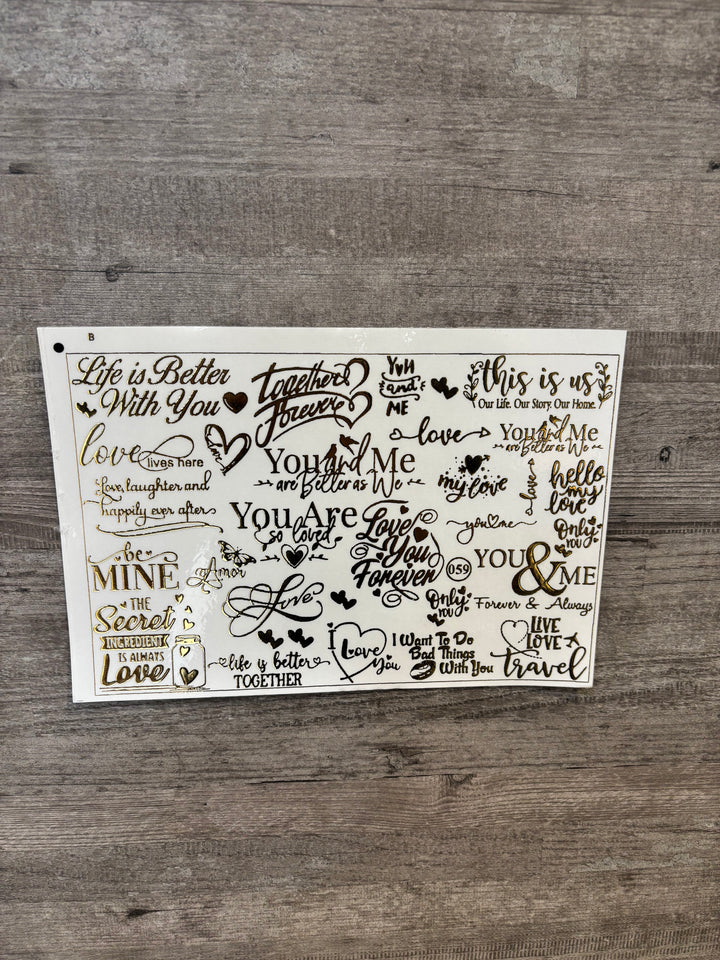 B
Life is Better
With You
Together
Forever
You
and
ME
this is us
Our Life. Our Story. Our Home.
love
lives here
love
You and Me
are Better as We
You and Me
are Better as We
my love
love
hello
my
love
Love, laughter and
happily ever after
You Are
so loved
Love
You
Forever
you me
Only
YOU
be
MINE
Amor
059
YOU & ME
Forever & Always
THE
Secret
INGREDIENT
IS ALWAYS
Love
Love
Only
YOU
life is better
TOGETHER
I
Love
You
I Want To Do
Bad Things
With You
LIVE
LOVE
travel